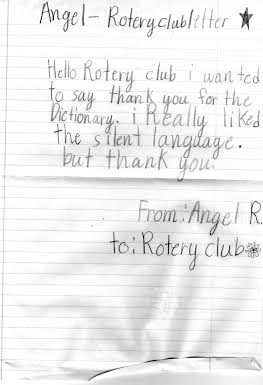 Angel - Roteryclubletter
Hello Rotery club i wanted
to say thank you for the
Dictionary. i Really liked
the silent language.
but thank you.
From: Angel R.
to: Rotery club